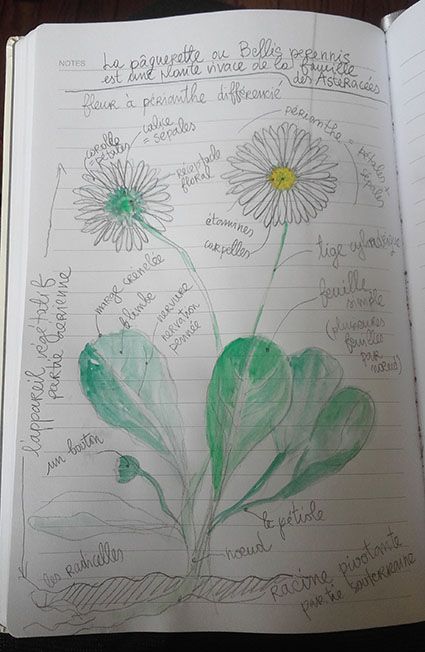 NOTES
La pâquerette ou Bellis perennis
est une plante vivace de la famille
des Asteracées
fleur à périanthe différencié
corolle
pétales
calice
= sépales
périanthe = pétales +
sépales
réceptacle
floral
étamines
carpelles
tige cylindrique
feuille
simple
(plusieures
feuilles
par
noeud)
marge crenelée
limbe
nervure
nervation
pennée
l'appareil végétatif
partie aérienne
un bouton
le pétiole
noeud
les radicelles
racine pivotante
partie souterraine